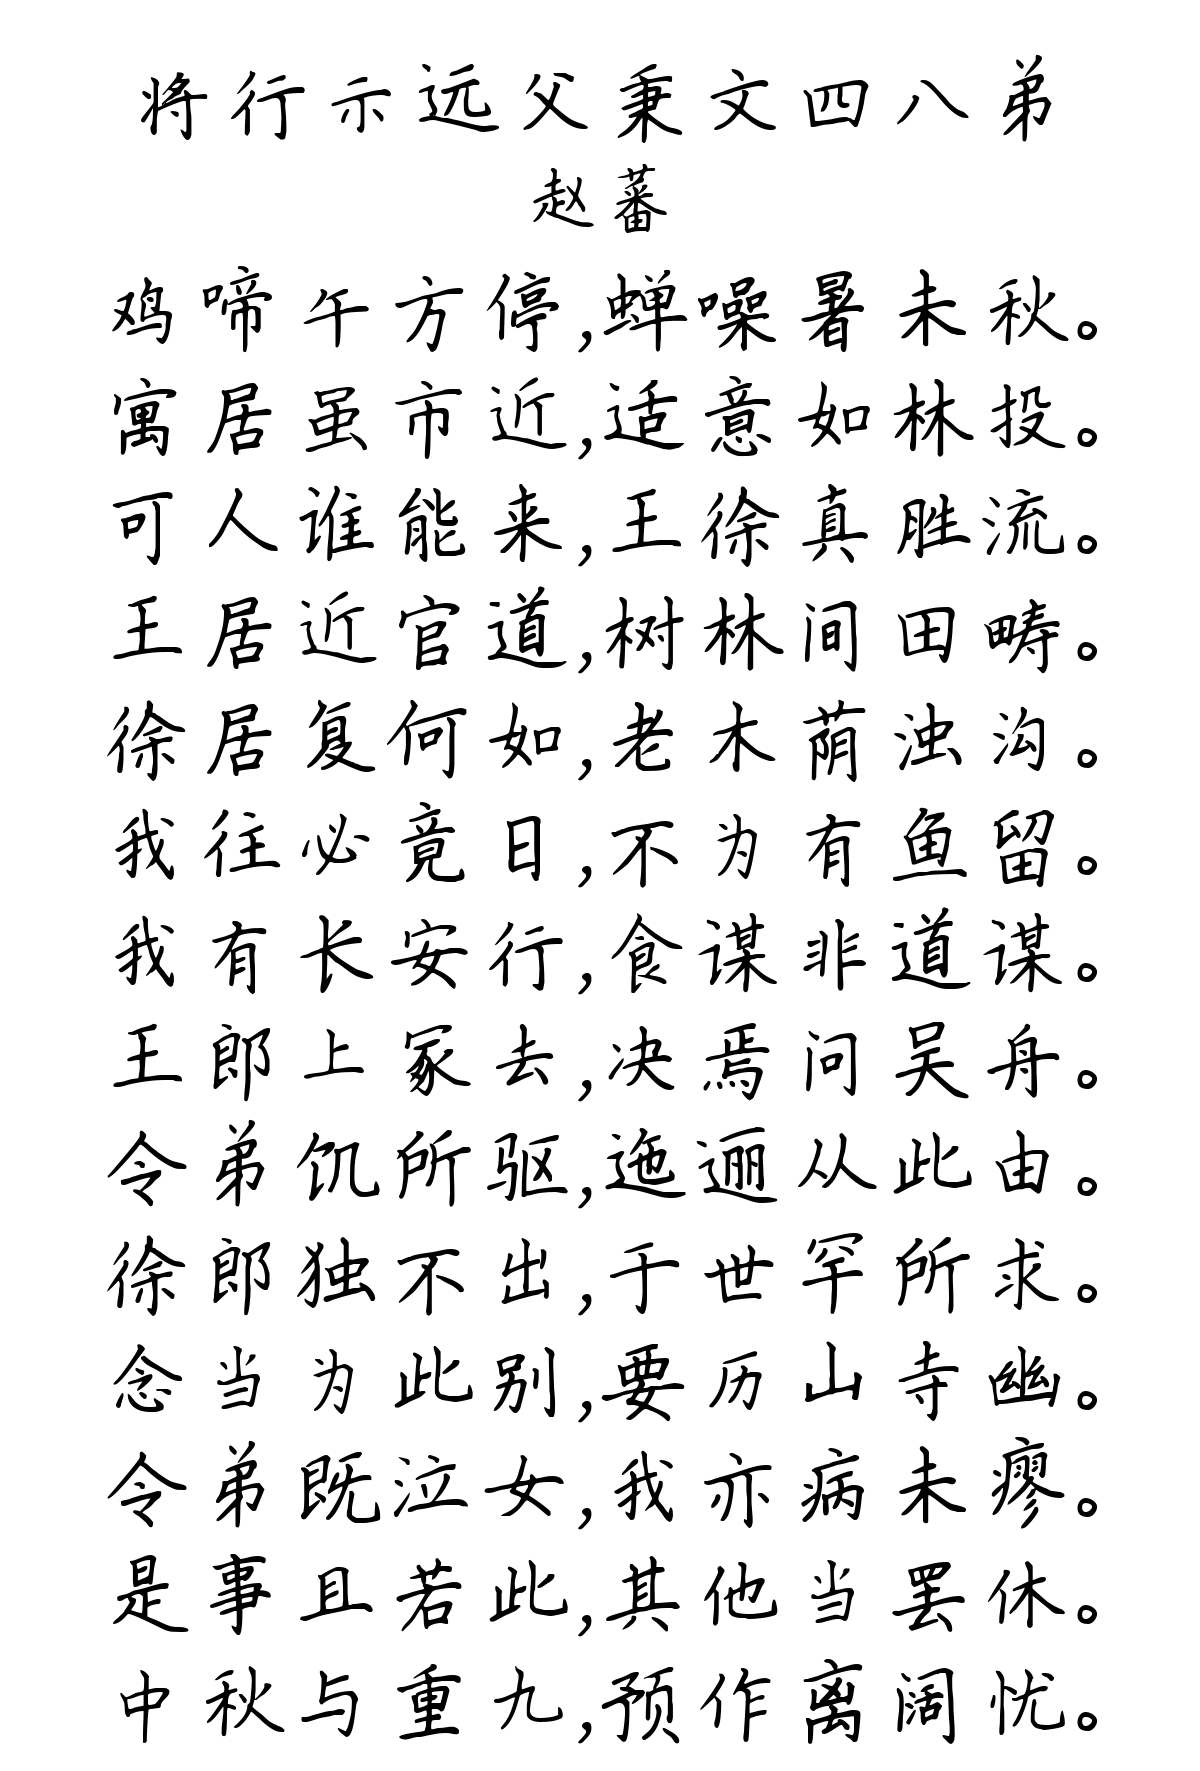 将行示远父秉文四八弟
赵蕃
鸡啼午方停,蝉噪暑未秋。
寓居虽市近,适意如林投。
可人谁能来,王徐真胜流。
王居近官道,树林间田畴。
徐居复何如,老木荫浊沟。
我往必竟日,不为有鱼留。
我有长安行,食谋非道谋。
王郎上冢去,决焉问吴舟。
令弟饥所驱,迤逦从此由。
徐郎独不出,于世罕所求。
念当为此别,要历山寺幽。
令弟既泣女,我亦病未瘳。
是事且若此,其他当罢休。
中秋与重九,预作离阔忧。